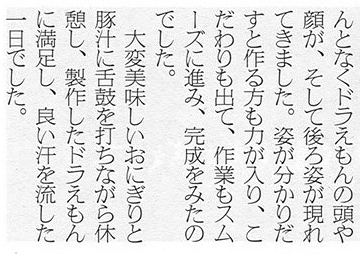 んとなくドラえもんの頭や
顔が、そして後ろ姿が現れ
てきました。姿が分かりだ
すと作る方も力が入り、こ
だわりも出て、作業もスム
ーズに進み、完成をみたの
でした。
　大変美味しいおにぎりと
豚汁に舌鼓を打ちながら休
憩し、製作したドラえもん
に満足し、良い汗を流した
一日でした。